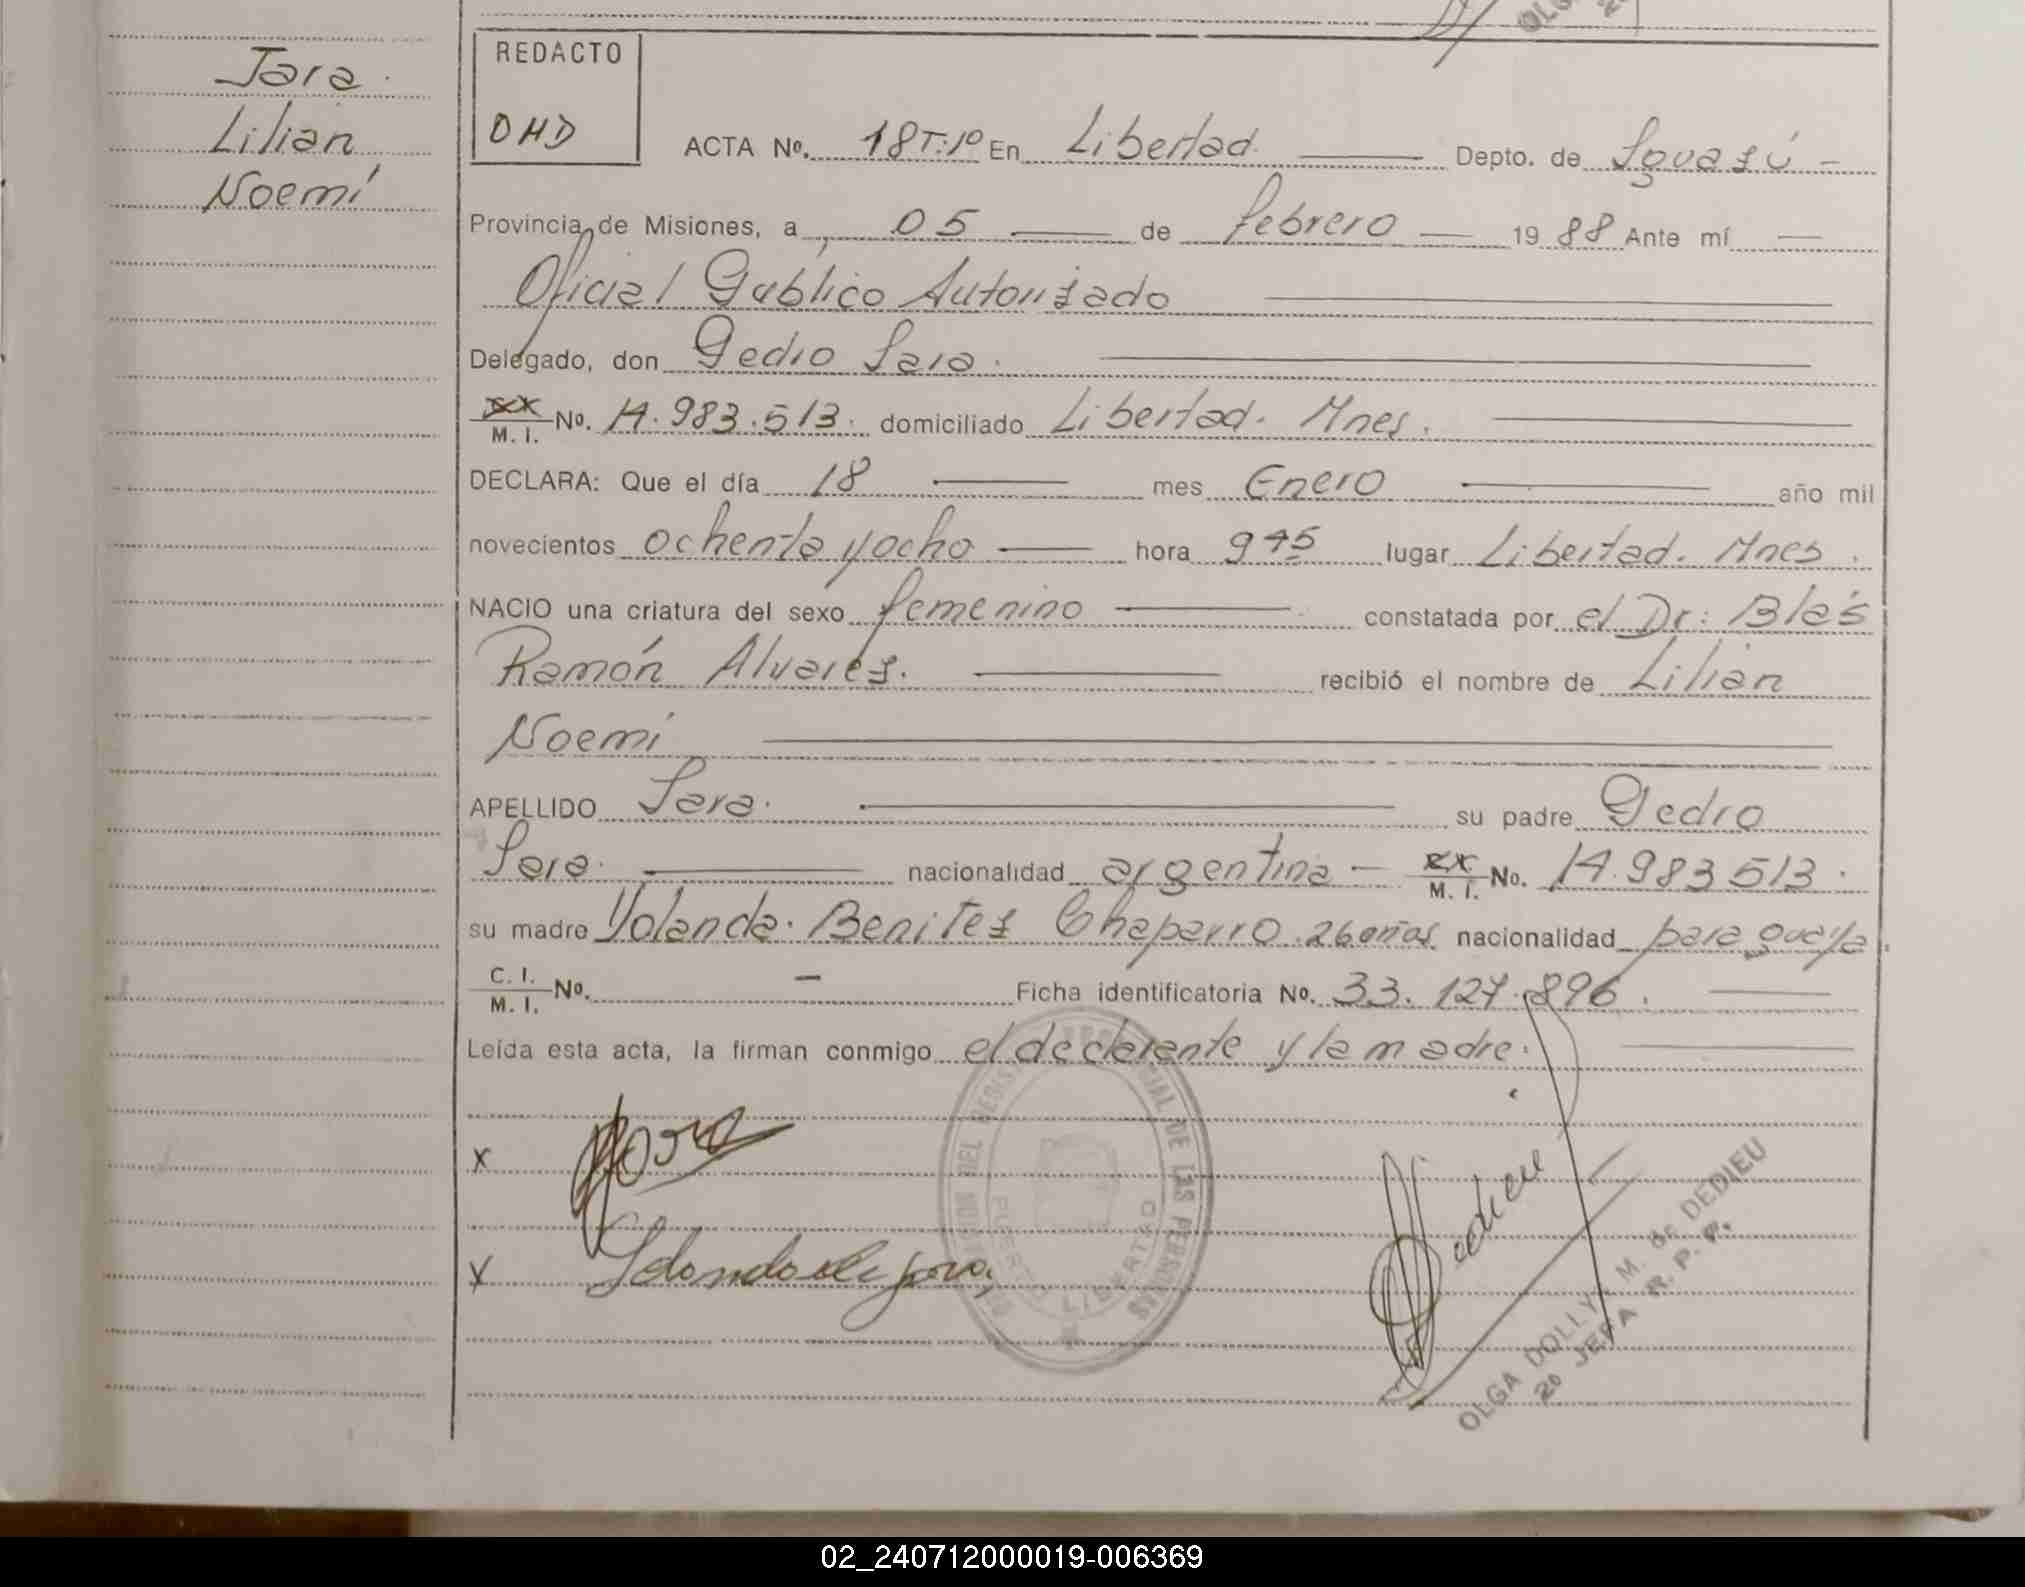 Jara
Lilian
Noemí
REDACTO
OHD
ACTA No. 18 T: 1º En Libertad Depto. de Iguazú
Provincia de Misiones, a 05 de febrero 1988 Ante mí
Oficial Público Autorizado
Delegado, don Pedro Jara.
M. I. No. 14.983.513. domiciliado Libertad. Mnes.
DECLARA: Que el día 18 mes Enero año mil
novecientos ochenta y ocho hora 945 lugar Libertad. Mnes.
NACIO una criatura del sexo femenino constatada por el Dr: Blás
Ramón Alvarez. recibió el nombre de Lilian
Noemí
APELLIDO Jara. su padre Pedro
Jara. nacionalidad argentina M. I. No. 14.983513.
su madre Yolanda. Benitez Chaparro. 26 años. nacionalidad paraguaya.
C. I.
M. I. No. - Ficha identificatoria No. 33.127.896.
Leída esta acta, la firman conmigo el declarante y la madre.
x Jara
x
Dedieu
DEL REGISTRO PROVINCIAL DE LAS PERSONAS
PUERTO LIBERTAD
OLGA DOLLY M. de DEDIEU
JEFA R. P. P.
02_240712000019-006369